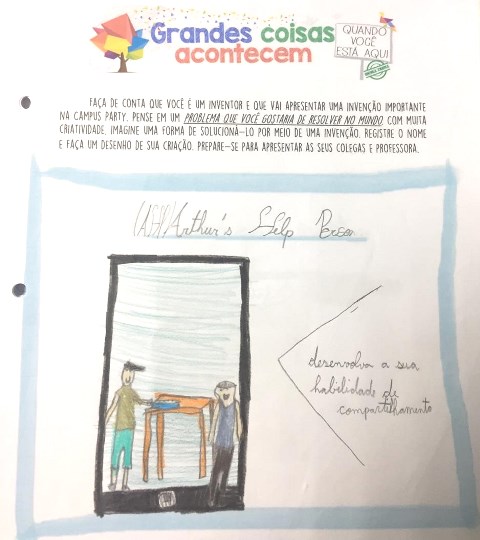 Grandes coisas
acontecem
QUANDO
VOCÊ
ESTÁ AQUI
FAÇA DE CONTA QUE VOCÊ É UM INVENTOR E QUE VAI APRESENTAR UMA INVENÇÃO IMPORTANTE
NA CAMPUS PARTY. PENSE EM UM PROBLEMA QUE VOCÊ GOSTARIA DE RESOLVER NO MUNDO. COM MUITA
CRIATIVIDADE, IMAGINE UMA FORMA DE SOLUCIONÁ-LO POR MEIO DE UMA INVENÇÃO. REGISTRE O NOME
E FAÇA UM DESENHO DE SUA CRIAÇÃO. PREPARE-SE PARA APRESENTAR AS SEUS COLEGAS E PROFESSORA.
Arthur's Help
desenvolva a sua
habilidade de
compartilhamento